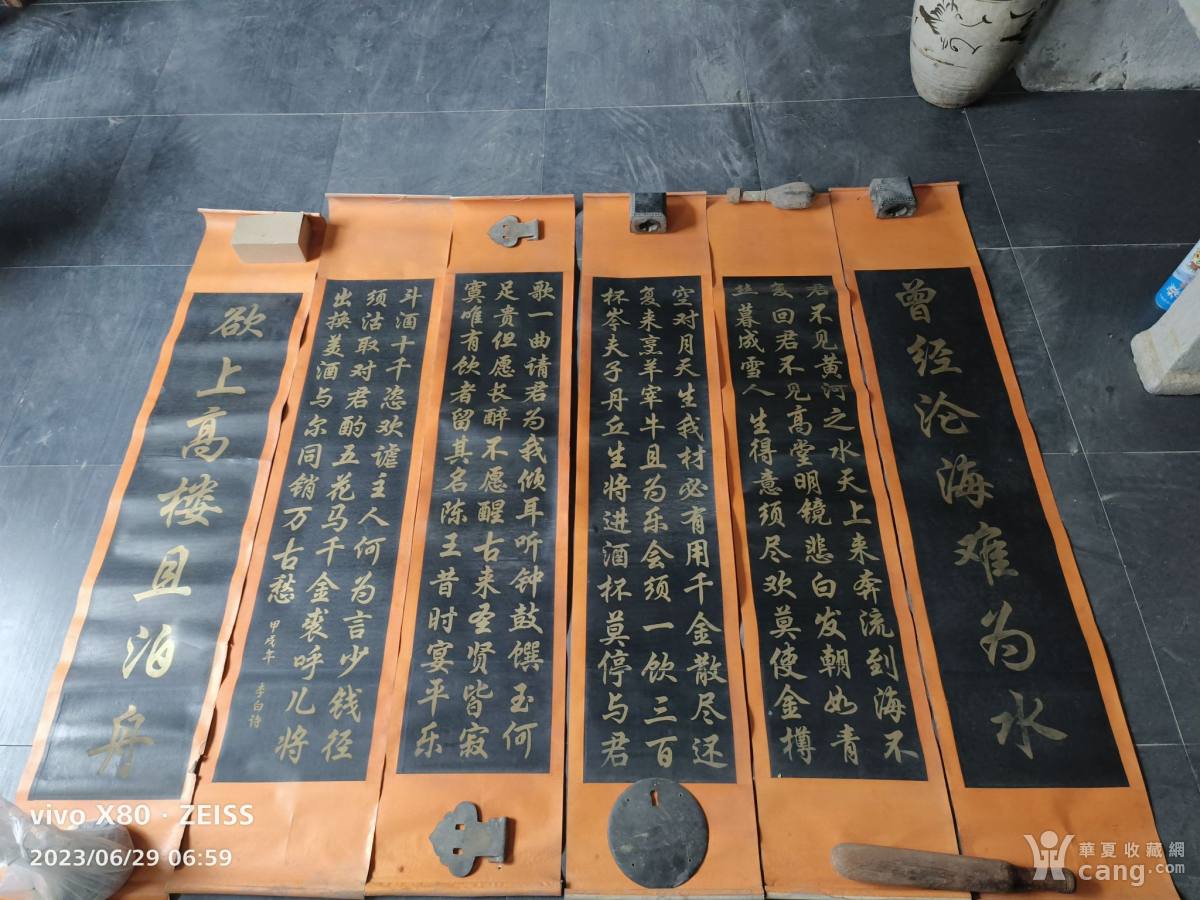 曾经沧海难为水
君不见黄河之水天上来奔流到海不
复回君不见高堂明镜悲白发朝如青
丝暮成雪人生得意须尽欢莫使金樽
空对月天生我材必有用千金散尽还
复来烹羊宰牛且为乐会须一饮三百
杯岑夫子丹丘生将进酒杯莫停与君
歌一曲请君为我倾耳听钟鼓馔玉何
足贵但愿长醉不愿醒古来圣贤皆寂
寞唯有饮者留其名陈王昔时宴平乐
斗酒十千恣欢谑主人何为言少钱径
须沽取对君酌五花马千金裘呼儿将
出换美酒与尔同销万古愁
甲戌年
李白诗
欲上高楼且泊舟
vivo X80 · ZEISS
2023/06/29 06:59
華夏收藏網
cang.com